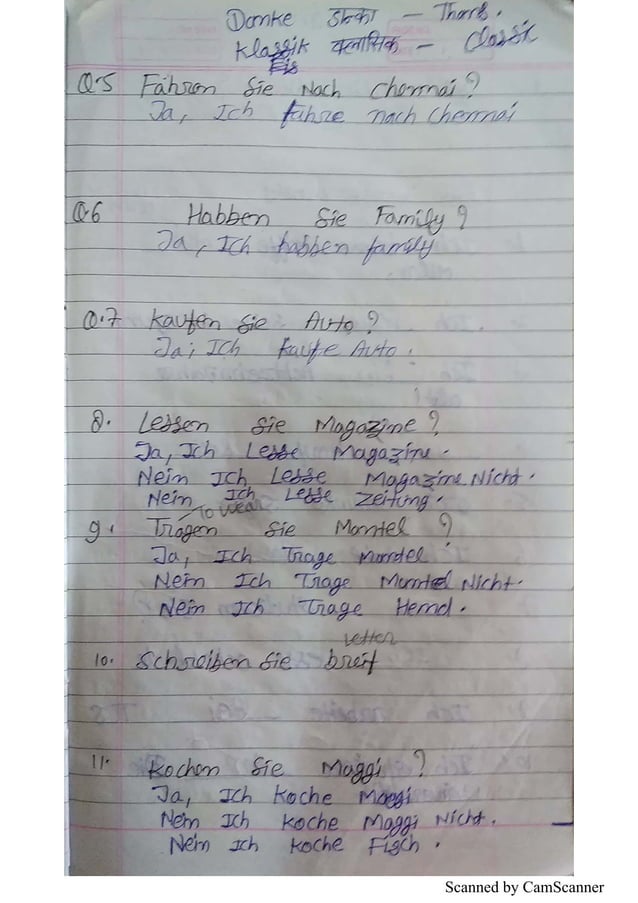 Danke डन्का - Thank.
Klassik क्लासिक - Classik
Eis
Q.5 Fahren Sie Nach Chennai?
Ja, Ich fahre nach Chennai
Q.6 Habben Sie Family?
Ja, Ich habben family
Q.7 Kaufen Sie Auto?
Ja, Ich kaufe Auto.
8. Lessen Sie Magazine?
Ja, Ich Lesse Magazine.
Nein Ich Lesse Magazine Nicht.
Nein Ich Lesse Zeitung.
To Wear
9. Tragen Sie Mantel?
Ja, Ich Trage Mantel
Nein Ich Trage Mantel Nicht.
Nein Ich Trage Hemd.
Letter
10. Schreiben Sie breif
11. Kochen Sie Maggi?
Ja, Ich Koche Maggi
Nein Ich Koche Maggi Nicht.
Nein Ich Koche Fisch.
Scanned by CamScanner